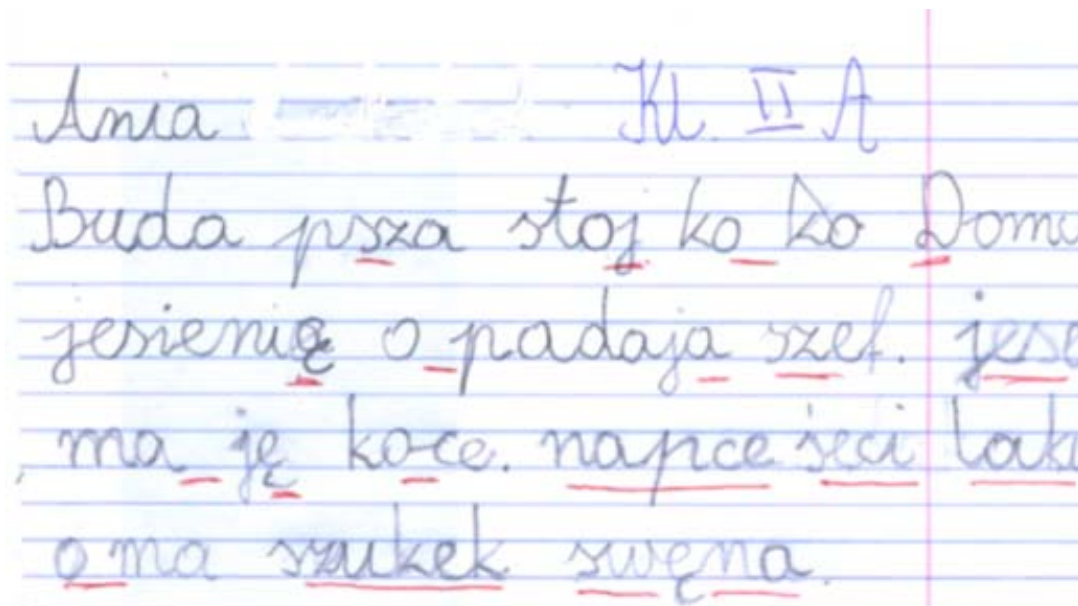 Ania Kl. II A
Buda psza stoj ko ko Domu
jesienię o padaja szef. jese
ma ję koce. napce śeci laku
o ma szukek swęna.